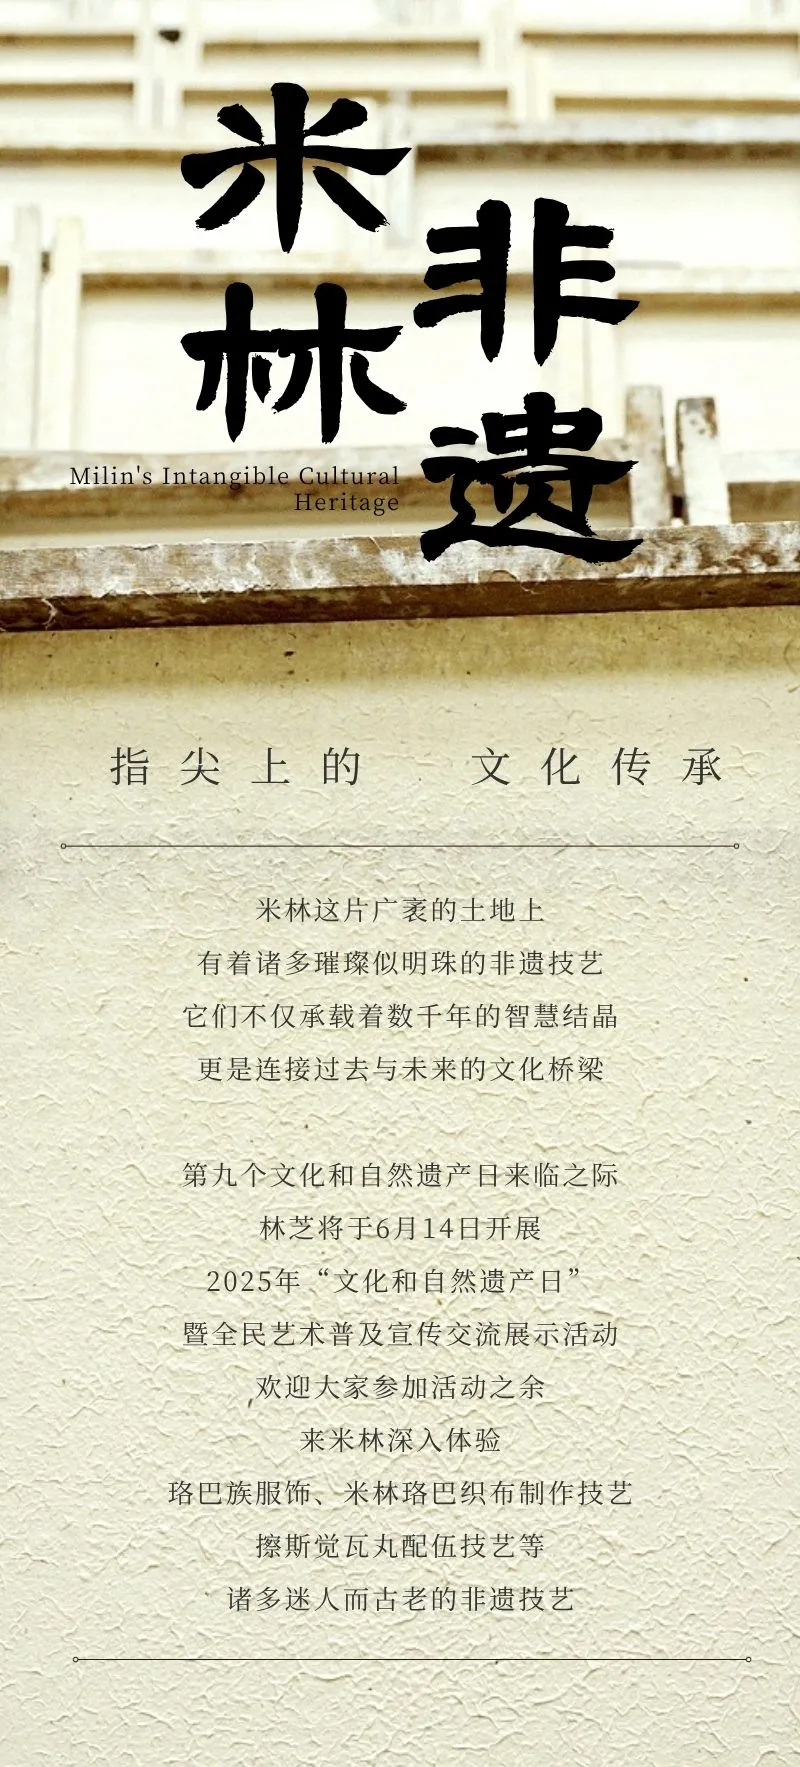 米林
非遗
Milin's Intangible Cultural
Heritage
指尖上的 文化传承
米林这片广袤的土地上
有着诸多璀璨似明珠的非遗技艺
它们不仅承载着数千年的智慧结晶
更是连接过去与未来的文化桥梁
第九个文化和自然遗产日来临之际
林芝将于6月14日开展
2025年“文化和自然遗产日”
暨全民艺术普及宣传交流展示活动
欢迎大家参加活动之余
来米林深入体验
珞巴族服饰、米林珞巴织布制作技艺
擦斯觉瓦丸配伍技艺等
诸多迷人而古老的非遗技艺